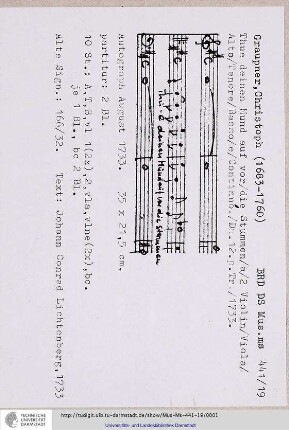 Graupner, Christoph (1683-1760)   BRD DS Mus.ms 441/19
Thue deinen Mund auf vor/die Stummen/a/2 Violin/Viola/
Alto/Tenore/Basso/e/Continuo./Dn.12.p.Tr./1733.
Thue deinen Mund auf vor die Stummen
Autograph August 1733.   35 x 21,5 cm.
partitur: 2 Bl.
10 St.: A,T,B,vl 1(2x),2,vla,vlne(2x),bc.
je 1 Bl., bc 2 Bl.
Alte Sign.: 166/32.   Text: Johann Conrad Lichtenberg,1733
TECHNISCHE
UNIVERSITÄT
DARMSTADT
http://tudigit.ulb.tu-darmstadt.de/show/Mus-Ms-441-19/0001
Universitäts- und Landesbibliothek Darmstadt